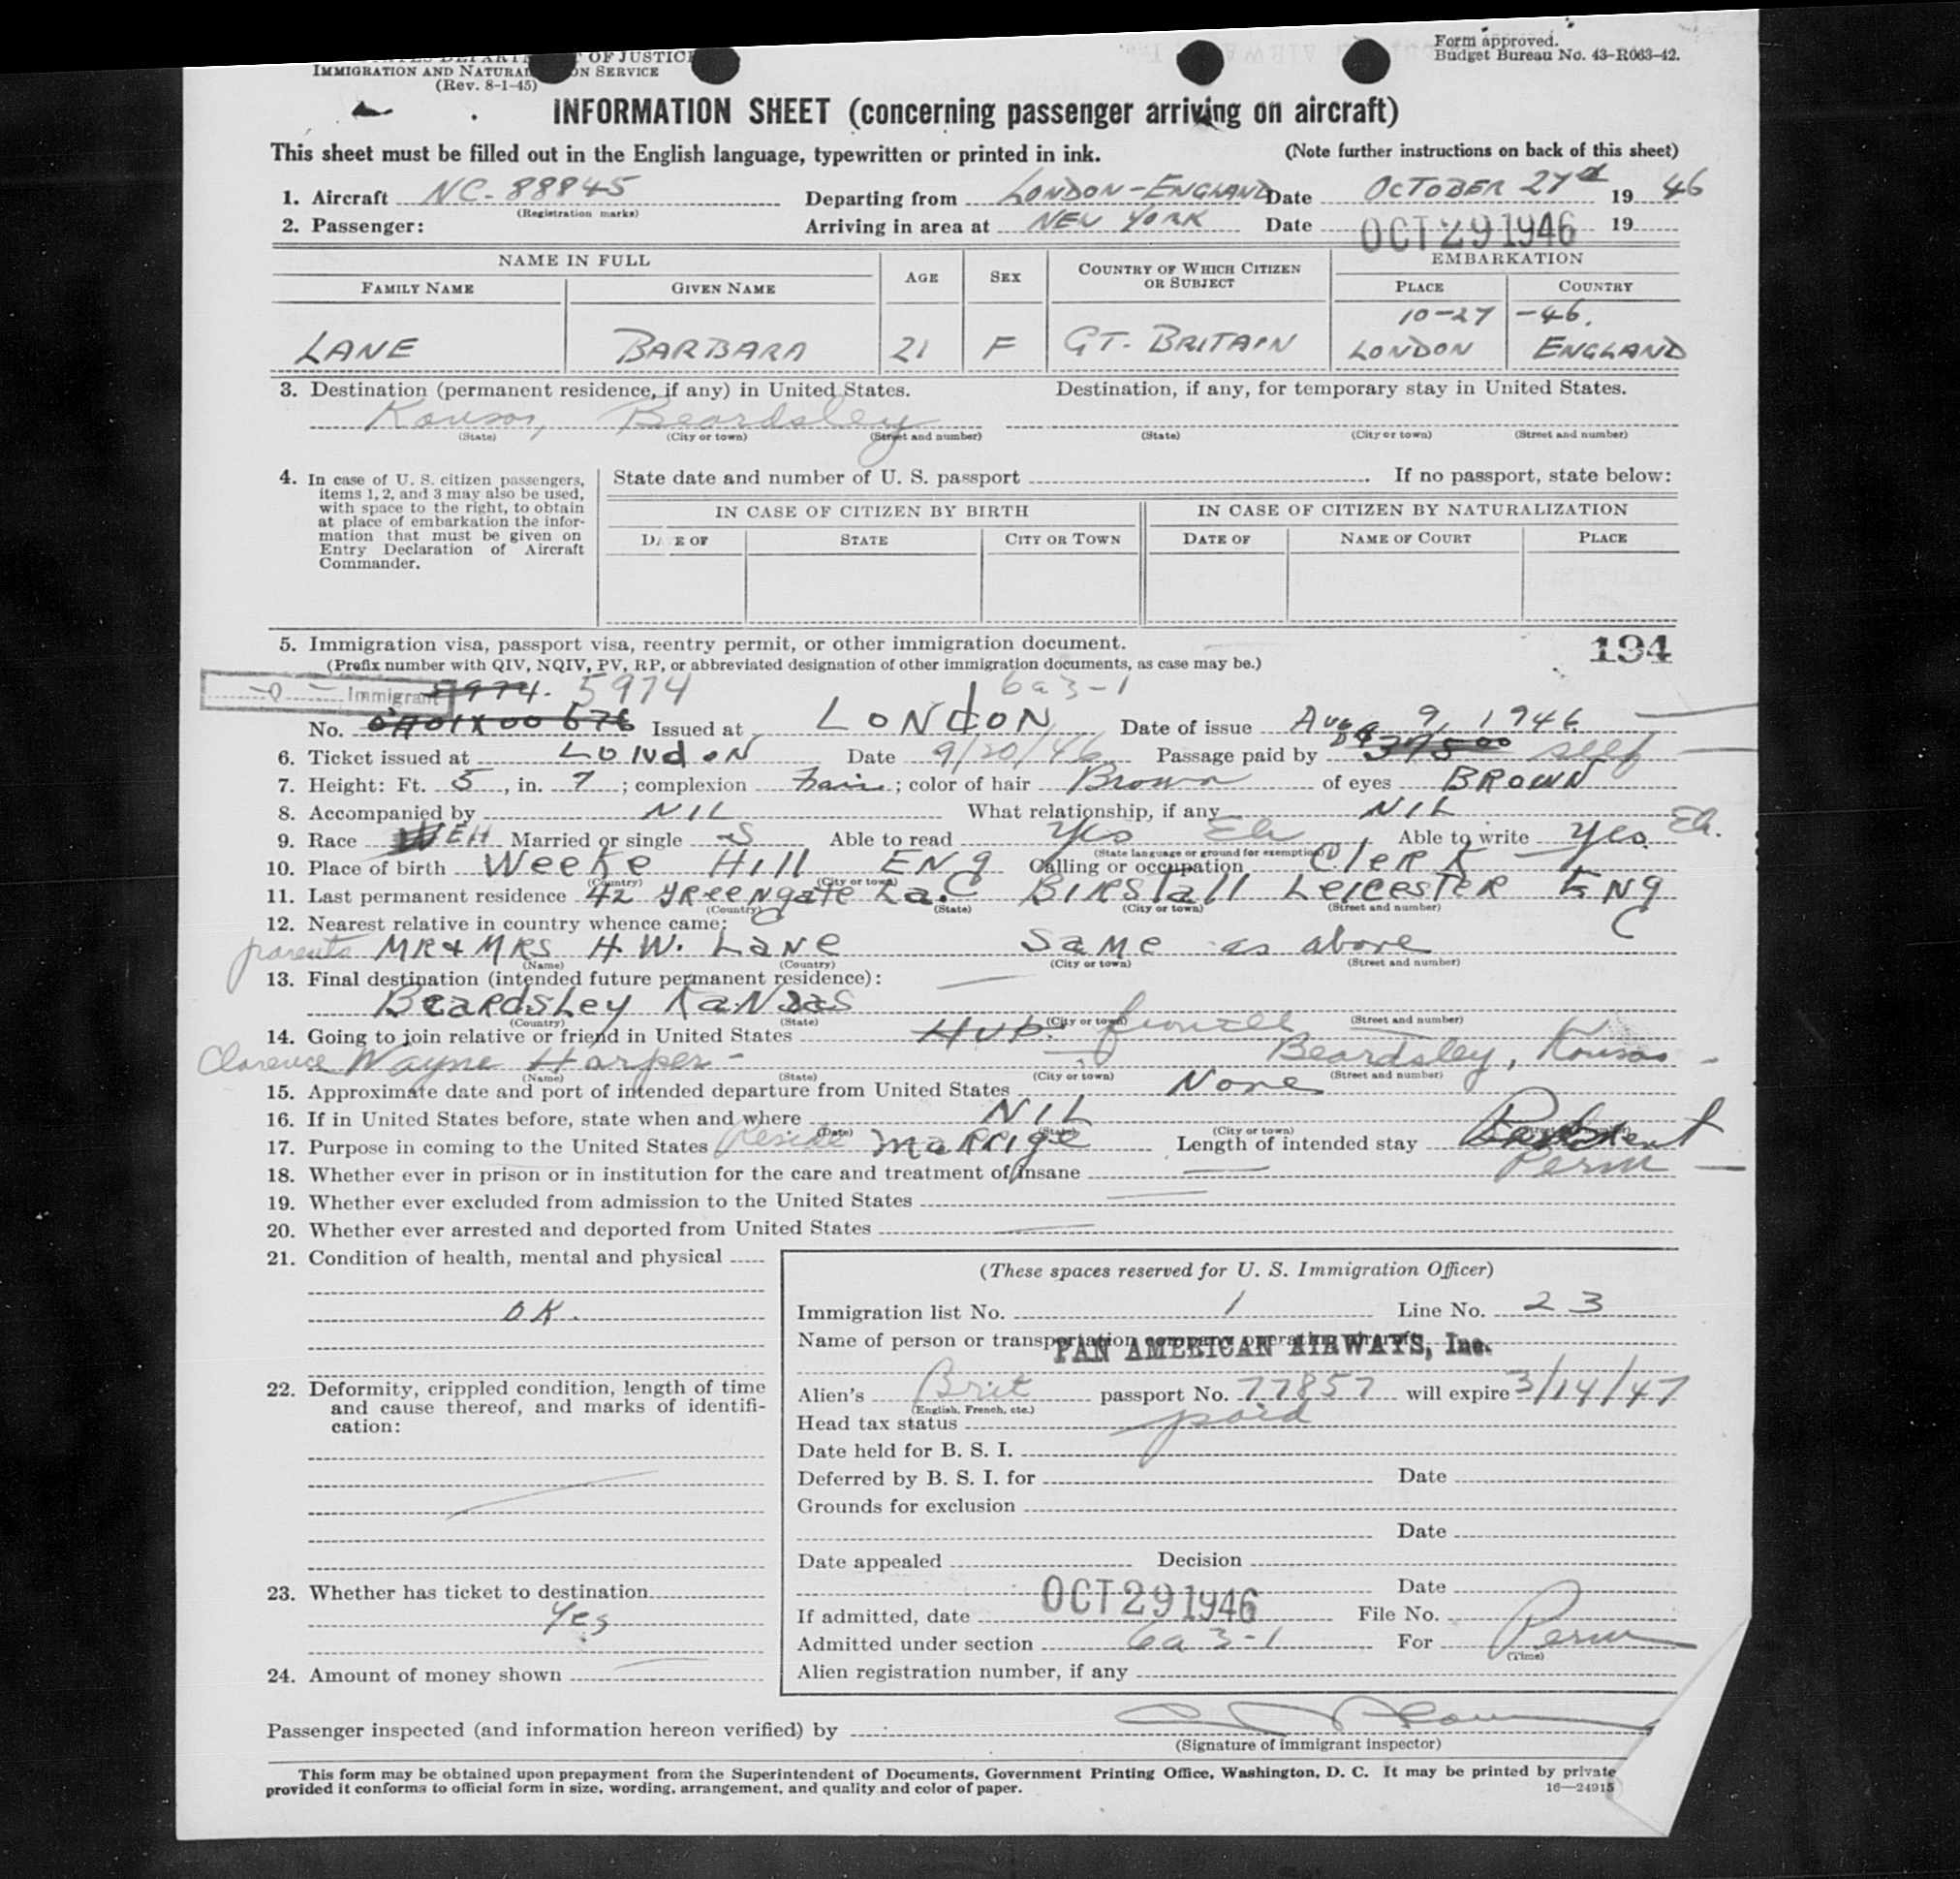 OF JUSTICE
Form approved.
IMMIGRATION AND NATURAL ON SERVICE
Budget Bureau No. 43-R063-42.
(Rev. 8-1-45)
INFORMATION SHEET (concerning passenger arriving on aircraft)
This sheet must be filled out in the English language, typewritten or printed in ink. (Note further instructions on back of this sheet)
1. Aircraft NC-88845 Departing from LONDON-ENGLAND Date OCTOBER 27d 19 46
(Registration marks)
2. Passenger: Arriving in area at NEW YORK Date OCT 29 1946 19
NAME IN FULL AGE SEX COUNTRY OF WHICH CITIZEN OR SUBJECT EMBARKATION
FAMILY NAME GIVEN NAME PLACE COUNTRY
10-27 -46.
LANE BARBARA 21 F GT. BRITAIN LONDON ENGLAND
3. Destination (permanent residence, if any) in United States. Destination, if any, for temporary stay in United States.
Kansas, Beardsley
(State) (City or town) (Street and number) (State) (City or town) (Street and number)
4. In case of U. S. citizen passengers, items 1, 2, and 3 may also be used, with space to the right, to obtain at place of embarkation the information that must be given on Entry Declaration of Aircraft Commander.
State date and number of U. S. passport . If no passport, state below:
IN CASE OF CITIZEN BY BIRTH IN CASE OF CITIZEN BY NATURALIZATION
DA E OF STATE CITY OR TOWN DATE OF NAME OF COURT PLACE
5. Immigration visa, passport visa, reentry permit, or other immigration document. 194
(Prefix number with QIV, NQIV, PV, RP, or abbreviated designation of other immigration documents, as case may be.)
-Q- Immigrant 5974. 5974 6a3-1
No. Issued at LONdON Date of issue Aug 9, 1946
6. Ticket issued at LONdON Date 9/20/46 Passage paid by 375 00 self
7. Height: Ft. 5, in. 7; complexion Fair; color of hair Brown of eyes BROWN
8. Accompanied by NIL What relationship, if any NIL
9. Race EH Married or single S Able to read Yes Eh Able to write Yes. Eh.
(State language or ground for exemption)
10. Place of birth Weeke Hill ENg Calling or occupation CleRK
(Country) (City or town)
11. Last permanent residence 42 GReengate La. BIRSTall LeICESTER ENg
(Country) (State) (City or town) (Street and number)
12. Nearest relative in country whence came:
parents MR & MRS H.W. LANe Same as above
(Name) (Country) (City or town) (Street and number)
13. Final destination (intended future permanent residence):
BeaRdsley KaNsas
(Country) (State) (City or town) (Street and number)
14. Going to join relative or friend in United States Hub. fiancee
Clarence Wayne Harper - Beardsley, Kansas -
(Name) (State) (City or town) (Street and number)
15. Approximate date and port of intended departure from United States None
16. If in United States before, state when and where NIL
(Date) (State) (City or town)
17. Purpose in coming to the United States Reside MaRRige Length of intended stay
Perm
18. Whether ever in prison or in institution for the care and treatment of insane
19. Whether ever excluded from admission to the United States
20. Whether ever arrested and deported from United States
21. Condition of health, mental and physical
OK.
22. Deformity, crippled condition, length of time and cause thereof, and marks of identification:
23. Whether has ticket to destination
Yes
24. Amount of money shown
(These spaces reserved for U. S. Immigration Officer)
Immigration list No. 1 Line No. 23
Name of person or transportation company operating aircraft
PAN AMERICAN AIRWAYS, Inc.
Alien's Brit passport No. 77857 will expire 3/14/47
(English, French, etc.)
Head tax status paid
Date held for B. S. I.
Deferred by B. S. I. for Date
Grounds for exclusion
Date
Date appealed Decision
Date
If admitted, date OCT 29 1946 File No.
Admitted under section 6a 3-1 For Perm
(Time)
Alien registration number, if any
Passenger inspected (and information hereon verified) by
(Signature of immigrant inspector)
This form may be obtained upon prepayment from the Superintendent of Documents, Government Printing Office, Washington, D. C. It may be printed by private
provided it conforms to official form in size, wording, arrangement, and quality and color of paper. 16—24915